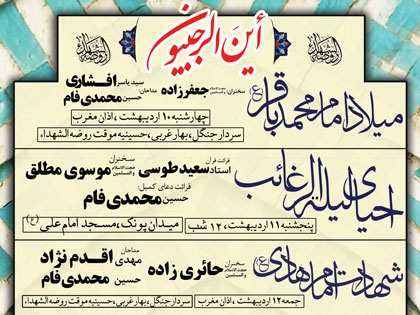 أینَ الرجبیون
میلاد امام محمد باقر (ع)
سخنران: حجت الاسلام والمسلمین جعفرزاده
مداحان: سید یاسر افشاری
حسین محمدی فام
چهارشنبه ۱۰ اردیبهشت ، اذان مغرب
سردار جنگل، بهار غربی، حسینیه موقت روضه الشهداء
احیای لیلة الرغائب
قرائت قرآن استاد سعید طوسی
سخنران حجت الاسلام والمسلمین موسوی مطلق
قرائت دعای کمیل: حسین محمدی فام
پنجشنبه ۱۱ اردیبهشت، ۱۲ شب
میدان پونک، مسجد امام علی (ع)
شهادت امام هادی (ع)
سخنران حجت الاسلام والمسلمین حائری زاده
مداحان مهدی اقدم نژاد
حسین محمدی فام
جمعه ۱۲ اردیبهشت ، اذان مغرب
سردار جنگل، بهار غربی، حسینیه موقت روضه الشهداء